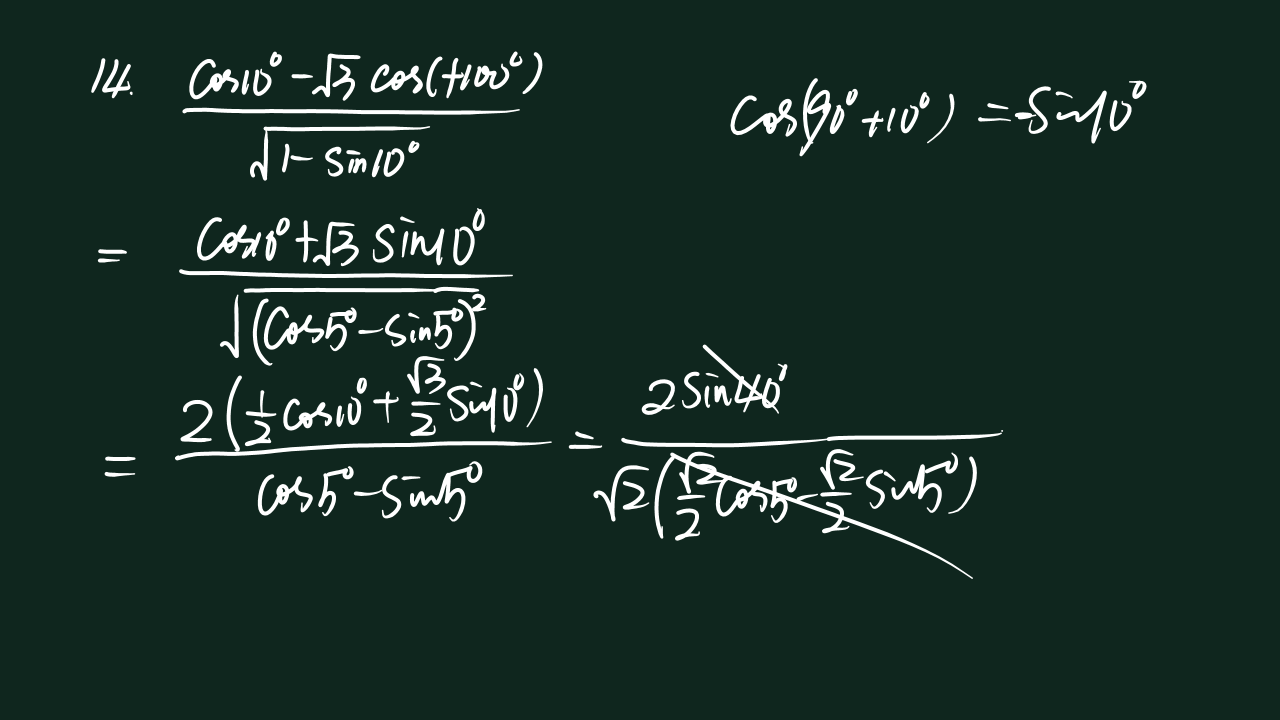 14. (cos10° - √3 cos(+100°)) / √(1 - sin10°)
cos(90° + 10°) = -sin10°
= (cos10° + √3 sin10°) / √((cos5° - sin5°)²)
= 2(1/2 cos10° + √3/2 sin10°) / (cos5° - sin5°) = 2 sin40° / √2(√2/2 cos5° - √2/2 sin5°)